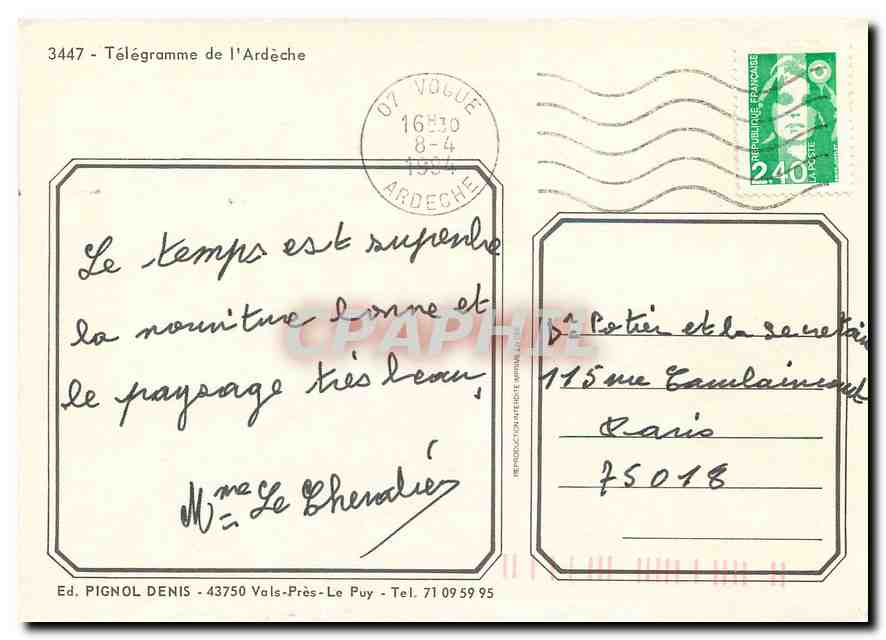 3447 - Télégramme de l'Ardèche
07 VOGUE
16H30
8-4
1994
ARDECHE
REPUBLIQUE FRANÇAISE
2,40
LA POSTE
Le temps est superbe
la nourriture bonne et
le paysage très beau,
Mme Le Chevalier
CPAPHIL
REPRODUCTION INTERDITE IMPRIME EN
Dr Potier et la secretair
115 rue Caulaincourt
Paris
75018
Ed. PIGNOL DENIS - 43750 Vals-Près-Le Puy - Tel. 71 09 59 95